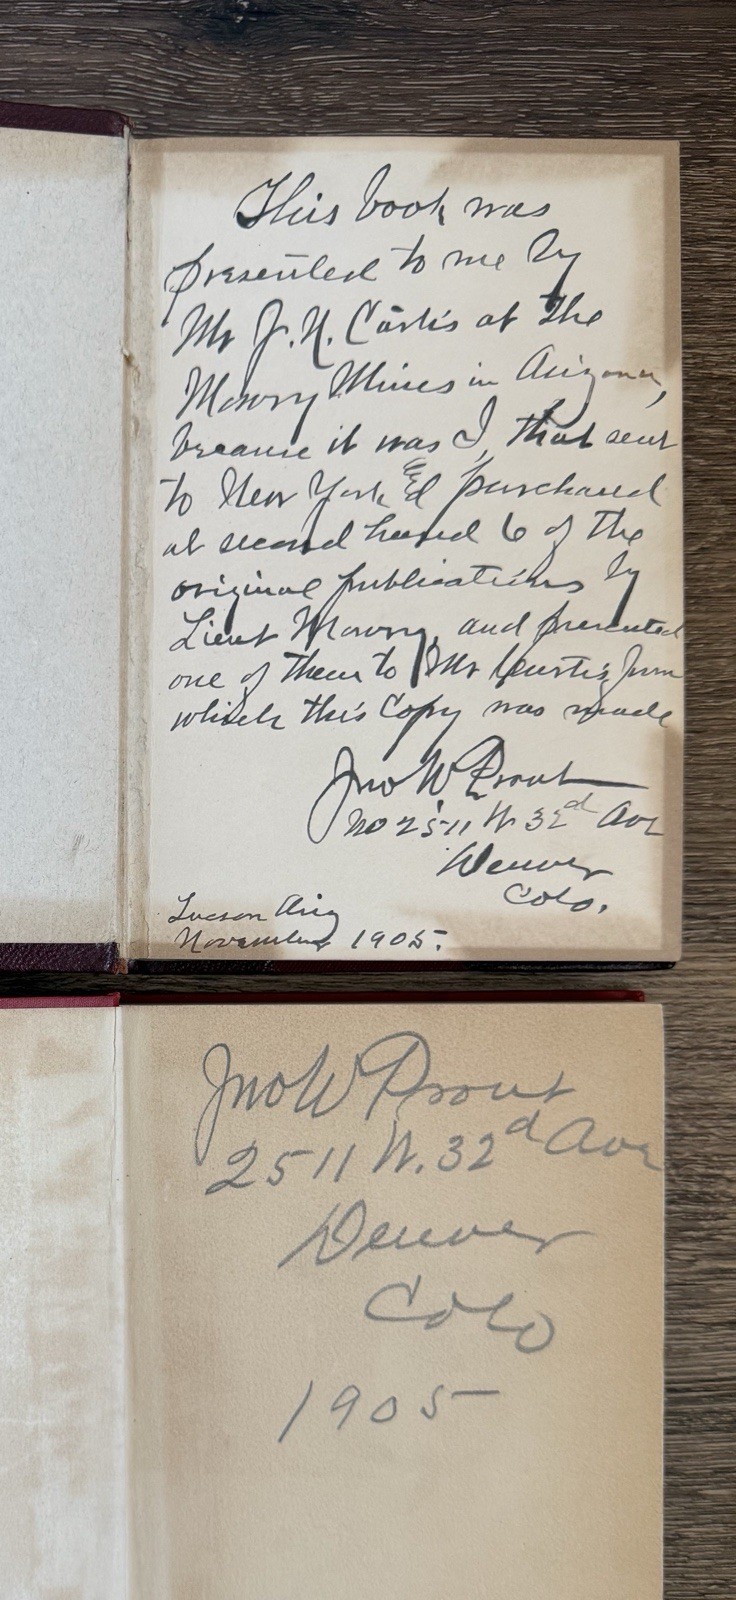 This book was
presented to me by
Mr J. N. Curtis at the
Mowry Mines in Arizona,
because it was I, that sent
to New York & purchased
at second hand 6 of the
original publications by
Lieut Mowry, and presented
one of them to Mr Curtis, from
which this Copy was made
Jno W Prout
No 2511 W 32d Ave
Denver
Colo.
Tucson Ariz
November 1905.
Jno W Prout
2511 W. 32d Ave
Denver
Colo
1905